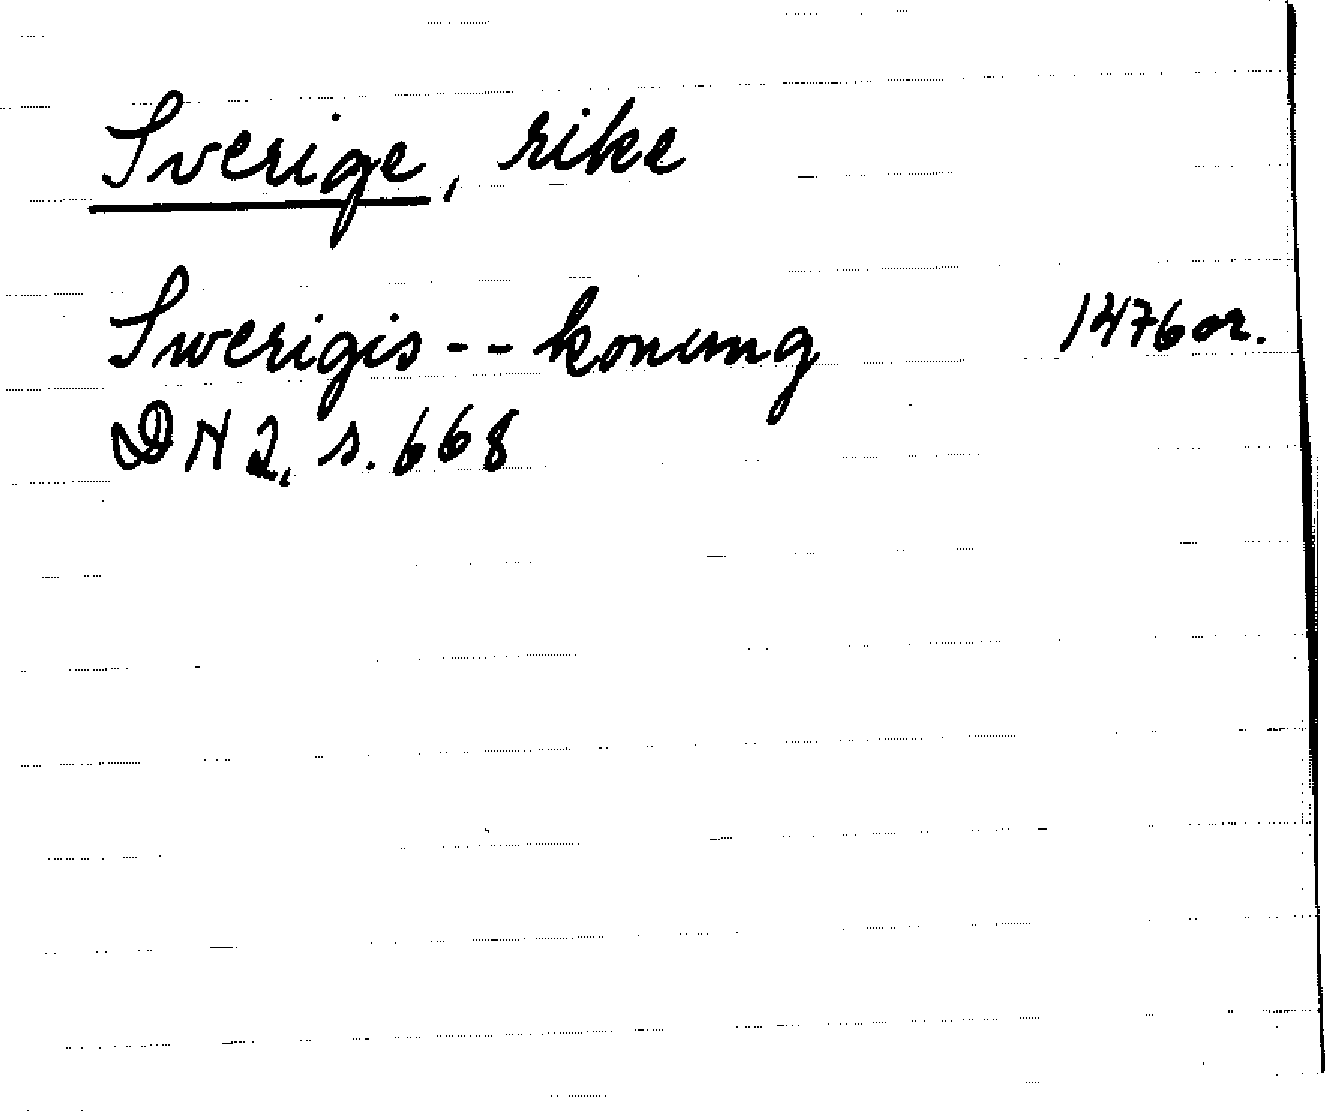 Sverige, rike
Swerigis -- konung 1476 or.
DN 2, s. 668